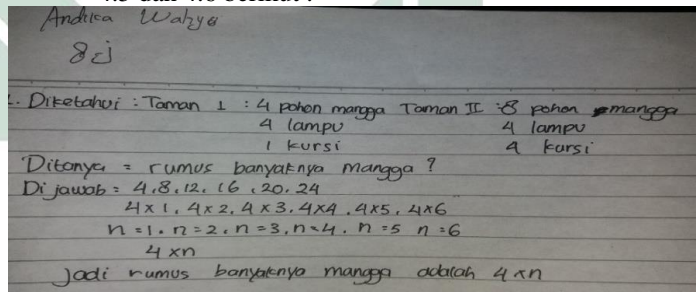 4.5 dan 4.6 berikut :
Andika Wahyu
8 j
1. Diketahui : Taman 1 : 4 pohon mangga Taman II : 8 pohon mangga
4 lampu 4 lampu
1 kursi 4 kursi
Ditanya = rumus banyaknya mangga ?
Di jawab = 4, 8, 12, 16, 20, 24
4 x 1, 4 x 2, 4 x 3, 4 x 4, 4 x 5, 4 x 6
n = 1, n = 2, n = 3, n = 4, n = 5 n = 6
4 x n
Jadi rumus banyaknya mangga adalah 4 x n